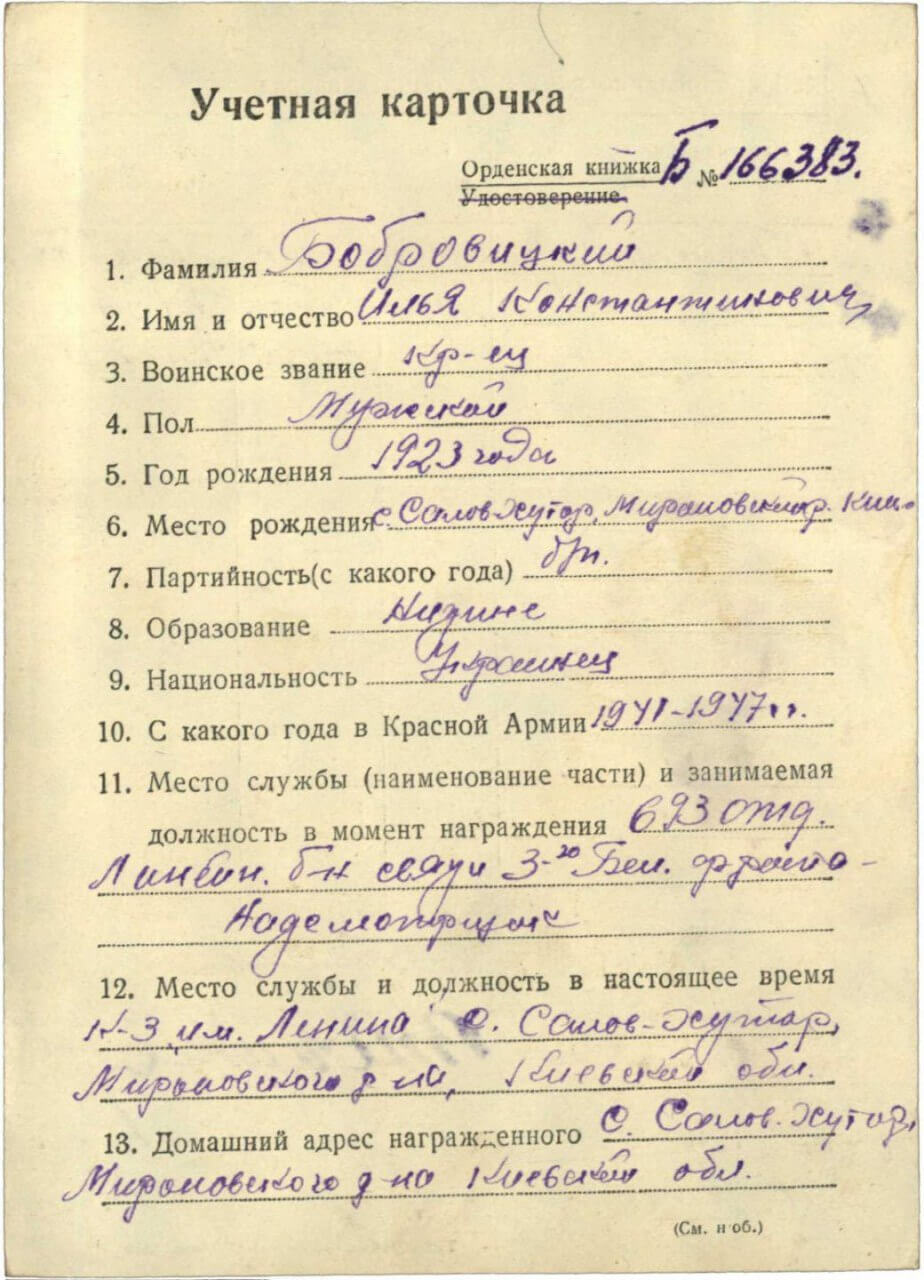 Учетная карточка
Орденская книжка Б № 166383.
Удостоверение
1. Фамилия Бобровицкий
2. Имя и отчество Илья Константинович
3. Воинское звание Кр-ец
4. Пол Мужской
5. Год рождения 1923 года
6. Место рождения с. Салов-Хутор, Мироновский р. Киев.
7. Партийность(с какого года) б/п.
8. Образование Низшее
9. Национальность Украинец
10. С какого года в Красной Армии 1941-1947 г.г.
11. Место службы (наименование части) и занимаемая
должность в момент награждения 693 отд.
Линейн. б-н связи 3-го Бел. фронта -
Надсмотрщик
12. Место службы и должность в настоящее время
К-з им. Ленина с. Салов-Хутор,
Мироновского р-на, Киевской обл.
13. Домашний адрес награжденного с. Салов-Хутор,
Мироновского р-на Киевской обл.
(См. н об.)